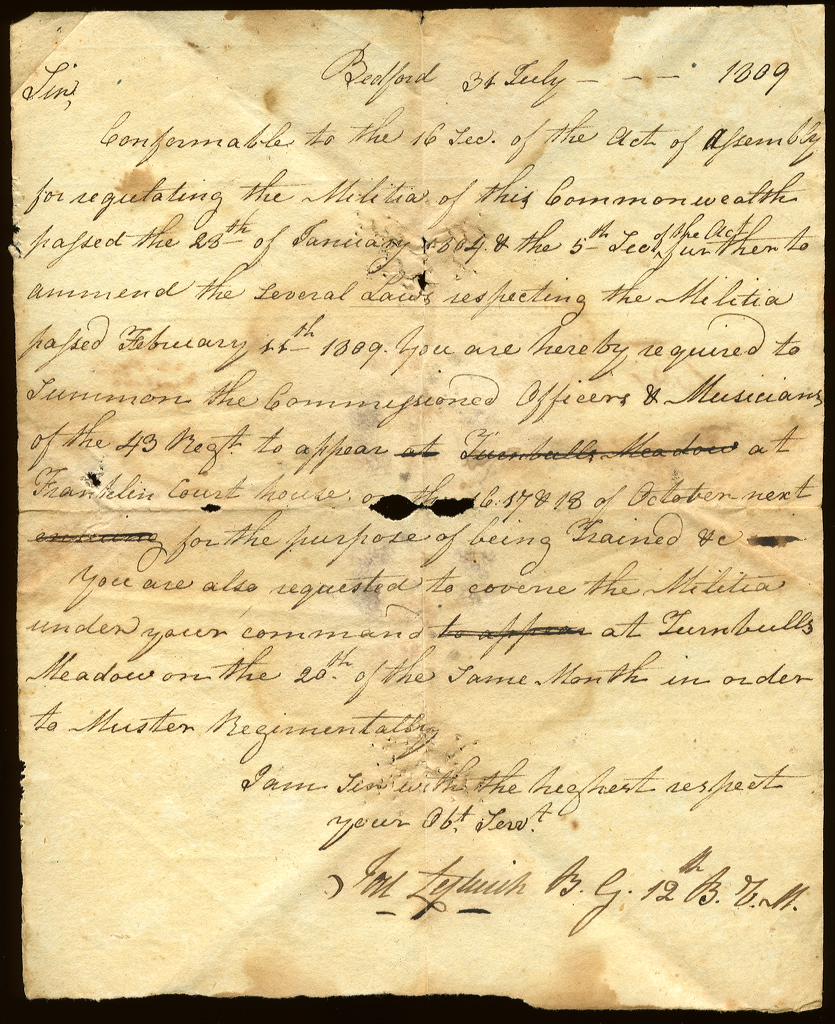 Bedford 31 July - - - 1809
Sir,
Conformable to the 16 Sec. of the Act of Assembly
for regulating the Militia of this Commonwealth
passed the 28th of January 1804. & the 5th Sec. of the Act further to
ammend the several Laws respecting the Militia
passed February 11th 1809. You are hereby required to
Summon the Commissioned Officers & Musicians
of the 43 Regt. to appear at Turnbulls Meadow at
Franklin Court house on the 16. 17 & 18 of October next
ensuing for the purpose of being Trained &c
You are also requested to covene the Militia
under your command to appear at Turnbulls
Meadow on the 20th of the Same Month in order
to Muster Regimentally
I am Sir with the heghest respect
your Obt. Servt.
Joel Leftwich B. G. 12th B. V. M.